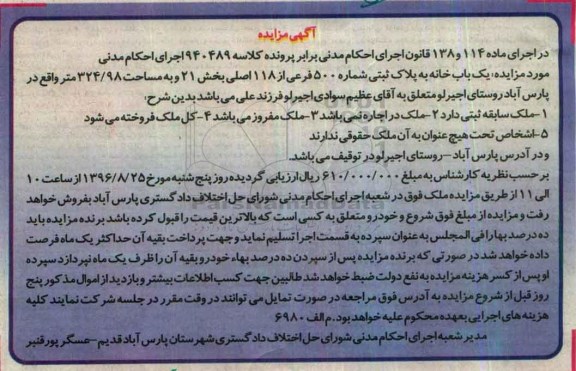 آگهی مزایده
در اجرای ماده ۱۱۴ و ۱۳۸ قانون اجرای احکام مدنی برابر پرونده کلاسه ۹۴۰۴۸۹ اجرای احکام مدنی
مورد مزایده: یک باب خانه به پلاک ثبتی شماره ۵۰۰ فرعی از ۱۱۸ اصلی بخش ۲۱ و به مساحت ۳۲۴/۹۸ متر واقع در
پارس آباد روستای اجیرلو متعلق به آقای عظیم سوادی اجیرلو فرزند علی می باشد بدین شرح:
۱-ملک سابقه ثبتی دارد ۲-ملک در اجاره نمی باشد ۳-ملک مفروز می باشد ۴-کل ملک فروخته می شود
۵-اشخاص تحت هیچ عنوان به آن ملک حقوقی ندارند
و در آدرس پارس آباد – روستای اجیرلو در توقیف می باشد.
بر حسب نظریه کارشناس به مبلغ ۶۱۰/۰۰۰/۰۰۰ ریال ارزیابی گردیده روز پنج شنبه مورخ ۱۳۹۶/۸/۲۵ از ساعت ۱۰
الی ۱۱ از طریق مزایده ملک فوق در شعبه اجرای احکام مدنی شورای حل اختلاف دادگستری پارس آباد بفروش خواهد
رفت و مزایده از مبلغ فوق شروع و خودرو متعلق به کسی است که بالاترین قیمت را قبول کرده باشد برنده مزایده باید
ده درصد بها را فی المجلس به عنوان سپرده به قسمت اجرا تسلیم نماید و جهت پرداخت بقیه آن حداکثر یک ماه فرصت
داده خواهد شد در صورتی که برنده مزایده پس از سپردن ده درصد بهاء خودرو بقیه آن را ظرف یک ماه نپردازد سپرده
او پس از کسر هزینه مزایده به نفع دولت ضبط خواهد شد طالبین جهت کسب اطلاعات بیشتر و بازدید از اموال مذکور پنج
روز قبل از شروع مزایده به آدرس فوق مراجعه در صورت تمایل می توانند در وقت مقرر در جلسه شرکت نمایند کلیه
هزینه های اجرایی بعهده محکوم علیه خواهد بود. م الف ۶۹۸۰
مدیر شعبه اجرای احکام مدنی شورای حل اختلاف دادگستری شهرستان پارس آباد قدیم – عسگر پورقنبر